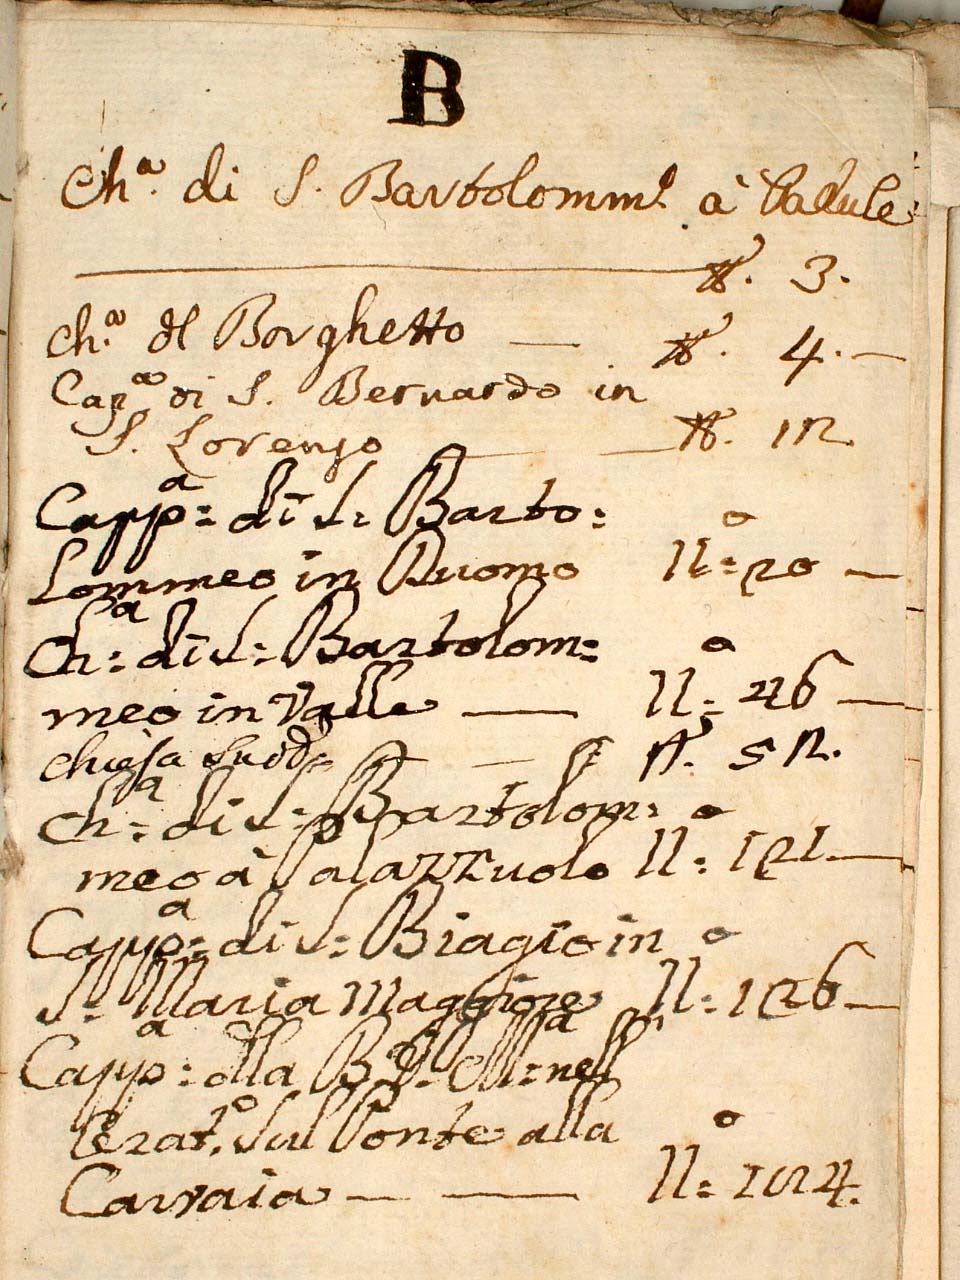 B
Ch.ª di S. Bartolomm.º à Padule
N. 3.
Ch.ª dl Borghetto — N. 4. —
Cap.ª di S. Bernardo in
S. Lorenzo — N. 12.
Capp.ª di S: Barto:
lommeo in Duomo N.º 20 —
Ch:ª di S: Bartolom:
meo in Valle — N.º 46 —
Chiesa sudd.ª — N. 52.
Ch:ª di S: Bartolom:
meo à Palazzuolo N.º 121. —
Capp:ª di S: Biagio in
S: Maria Maggiore N.º 126 —
Capp:ª dlla B. V. M:ª nell
Orat.º sul Ponte alla
Carraia — N.º 124.